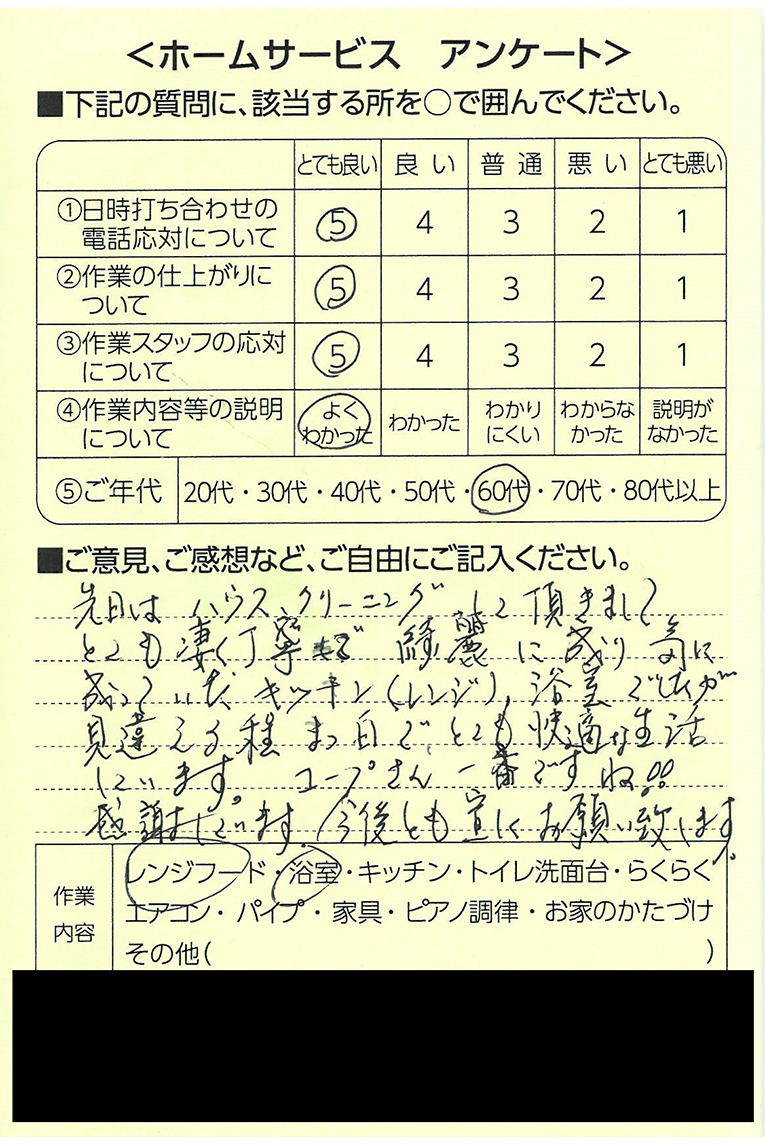 ＜ホームサービス　アンケート＞
■下記の質問に、該当する所を○で囲んでください。
とても良い 良い 普通 悪い とても悪い
①日時打ち合わせの
電話応対について 5 4 3 2 1
②作業の仕上がりに
ついて 5 4 3 2 1
③作業スタッフの応対
について 5 4 3 2 1
④作業内容等の説明
について よく
わかった わかった わかり
にくい わからな
かった 説明が
なかった
⑤ご年代 20代・30代・40代・50代・60代・70代・80代以上
■ご意見、ご感想など、ご自由にご記入ください。
先日は ハウスクリーニング して頂きまして
とても凄く丁寧で 綺麗に成り 気に
成っていた、キッチン(レンジ)、浴室でしたが
見違える程 まっ白で、とても快適な生活
しています。 コープさん 一番ですね!!
感謝しています。今後とも宜しくお願い致します。
作業
内容
レンジフード・浴室・キッチン・トイレ洗面台・らくらく
エアコン・パイプ・家具・ピアノ調律・お家のかたづけ
その他( )